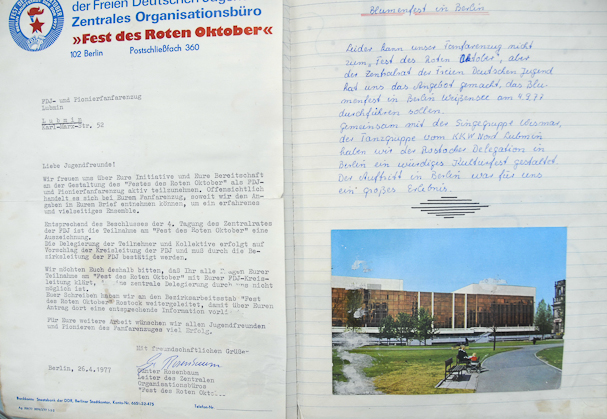 der Freien Deutschen Jugend
Zentrales Organisationsbüro
»Fest des Roten Oktober«
102 Berlin Postschließfach 360
FDJ- und Pionierfanfarenzug
Lubmin
Lubmin
Karl-Marx-Str. 52
Liebe Jugendfreunde!
Wir freuen uns über Eure Initiative und Eure Bereitschaft
an der Gestaltung des "Festes des Roten Oktober" als FDJ-
und Pionierfanfarenzug aktiv teilzunehmen. Offensichtlich
handelt es sich bei Eurem Fanfarenzug, soweit wir den An-
gaben in Eurem Brief entnehmen können, um ein erfahrenes
und vielseitiges Ensemble.
Entsprechend des Beschlusses der 4. Tagung des Zentralrates
der FDJ ist die Teilnahme am "Fest des Roten Oktober" eine
Auszeichnung.
Die Delegierung der Teilnehmer und Kollektive erfolgt auf
Vorschlag der Kreisleitung der FDJ und muß durch die Be-
zirksleitung der FDJ bestätigt werden.
Wir möchten Euch deshalb bitten, daß Ihr alle Fragen Eurer
Teilnahme am "Fest des Roten Oktober" mit Eurer FDJ-Kreis-
leitung klärt, eine zentrale Delegierung durch uns nicht
möglich ist.
Euer Schreiben haben wir an den Bezirksarbeitsstab "Fest
des Roten Oktober" Rostock weitergeleitet, damit über Euren
Antrag dort eine entsprechende Information vorliegt.
Für Eure weitere Arbeit wünschen wir allen Jugendfreunden
und Pionieren des Fanfarenzuges viel Erfolg.
Mit freundschaftlichen Grüßen
Rosenbaum
Günter Rosenbaum
Leiter des Zentralen
Organisationsbüros
"Fest des Roten Okt
Berlin, 26.4.1977
Telefon-Nr.
Blumenfest in Berlin
Leider kann unser Fanfarenzug nicht
zum "Fest des Roten Oktober", aber
der Zentralrat der Freien Deutschen Jugend
hat uns das Angebot gemacht, das Blu-
menfest in Berlin Weißensee am 4.9.77
durchführen sollen.
Gemeinsam mit der Singegruppe Wismar,
der Tanzgruppe vom KKW Nord Lubmin
haben wir der Rostocker Delegation in
Berlin ein würdiges Kulturfest gestaltet.
Der Auftritt in Berlin war für uns
ein großes Erlebnis.